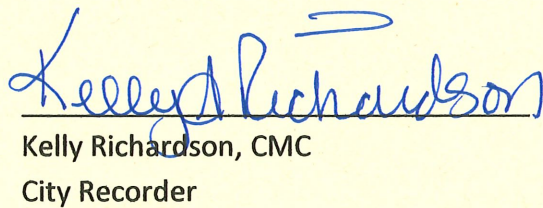 Kelly A Richardson
Kelly Richardson, CMC
City Recorder